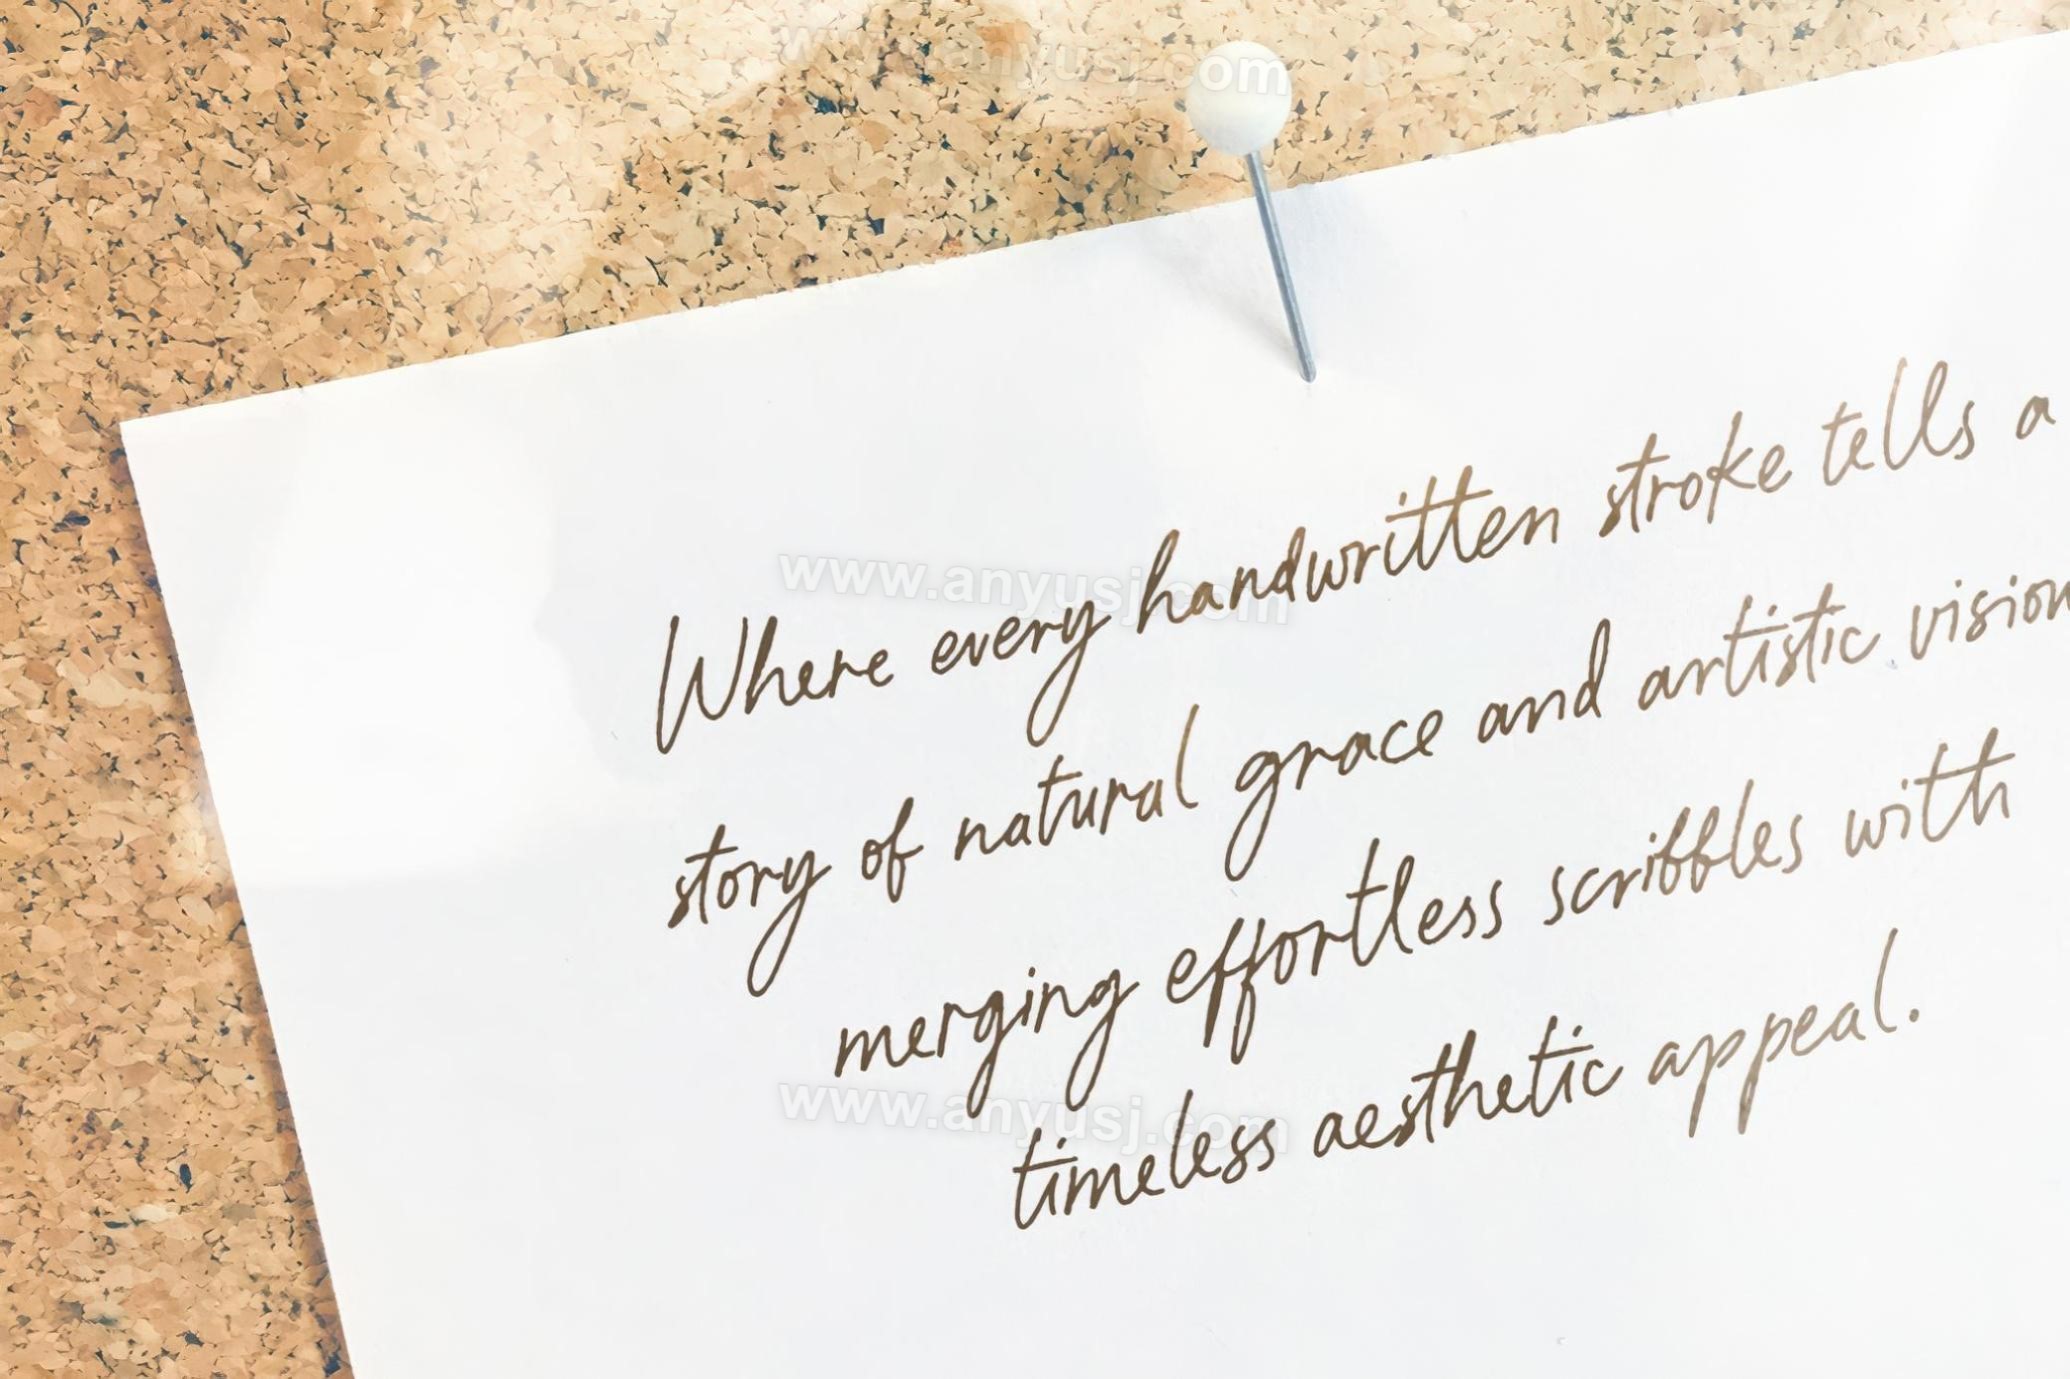 www.anyusj.com
Where every handwritten stroke tells a
www.anyusj.com
story of natural grace and artistic vision
merging effortless scribbles with
www.anyusj.com
timeless aesthetic appeal.